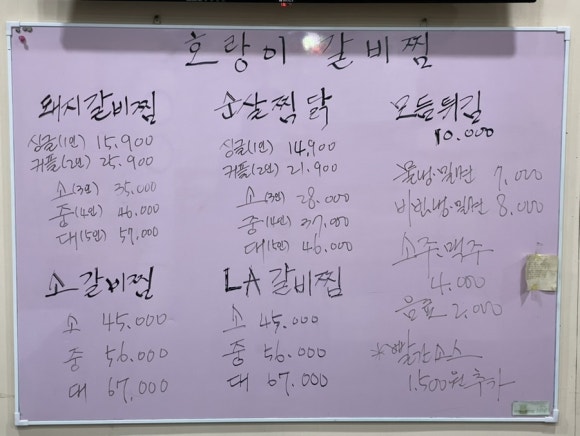 호랑이 갈비찜
돼지갈비찜
싱글(1인) 15,900
커플(2인) 25,900
소(3인) 35,000
중(4인) 46,000
대(5인) 57,000
순살찜닭
싱글(1인) 14,900
커플(2인) 21,900
소(3인) 28,000
중(4인) 37,000
대(5인) 46,000
모듬튀김
10,000
물냉·밀면 7,000
비빔냉·밀면 8,000
소주·맥주
4,000
음료 2,000
*빨간소스
1,500원 추가
소갈비찜
소 45,000
중 56,000
대 67,000
LA갈비찜
소 45,000
중 56,000
대 67,000